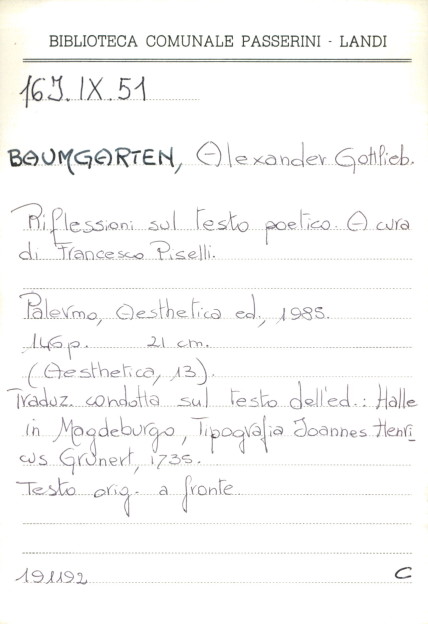 BIBLIOTECA COMUNALE PASSERINI - LANDI
16J.IX.51
BAUMGARTEN, Alexander Gottlieb.
Riflessioni sul testo poetico. A cura
di Francesco Piselli.
Palermo, Aesthetica ed., 1985.
146p. 21 cm.
(Aesthetica, 13).
Traduz. condotta sul testo dell'ed.: Halle
in Magdeburgo, Tipografia Joannes Henri
cus Grunert, 1735.
Testo orig. a fronte.
191192 C